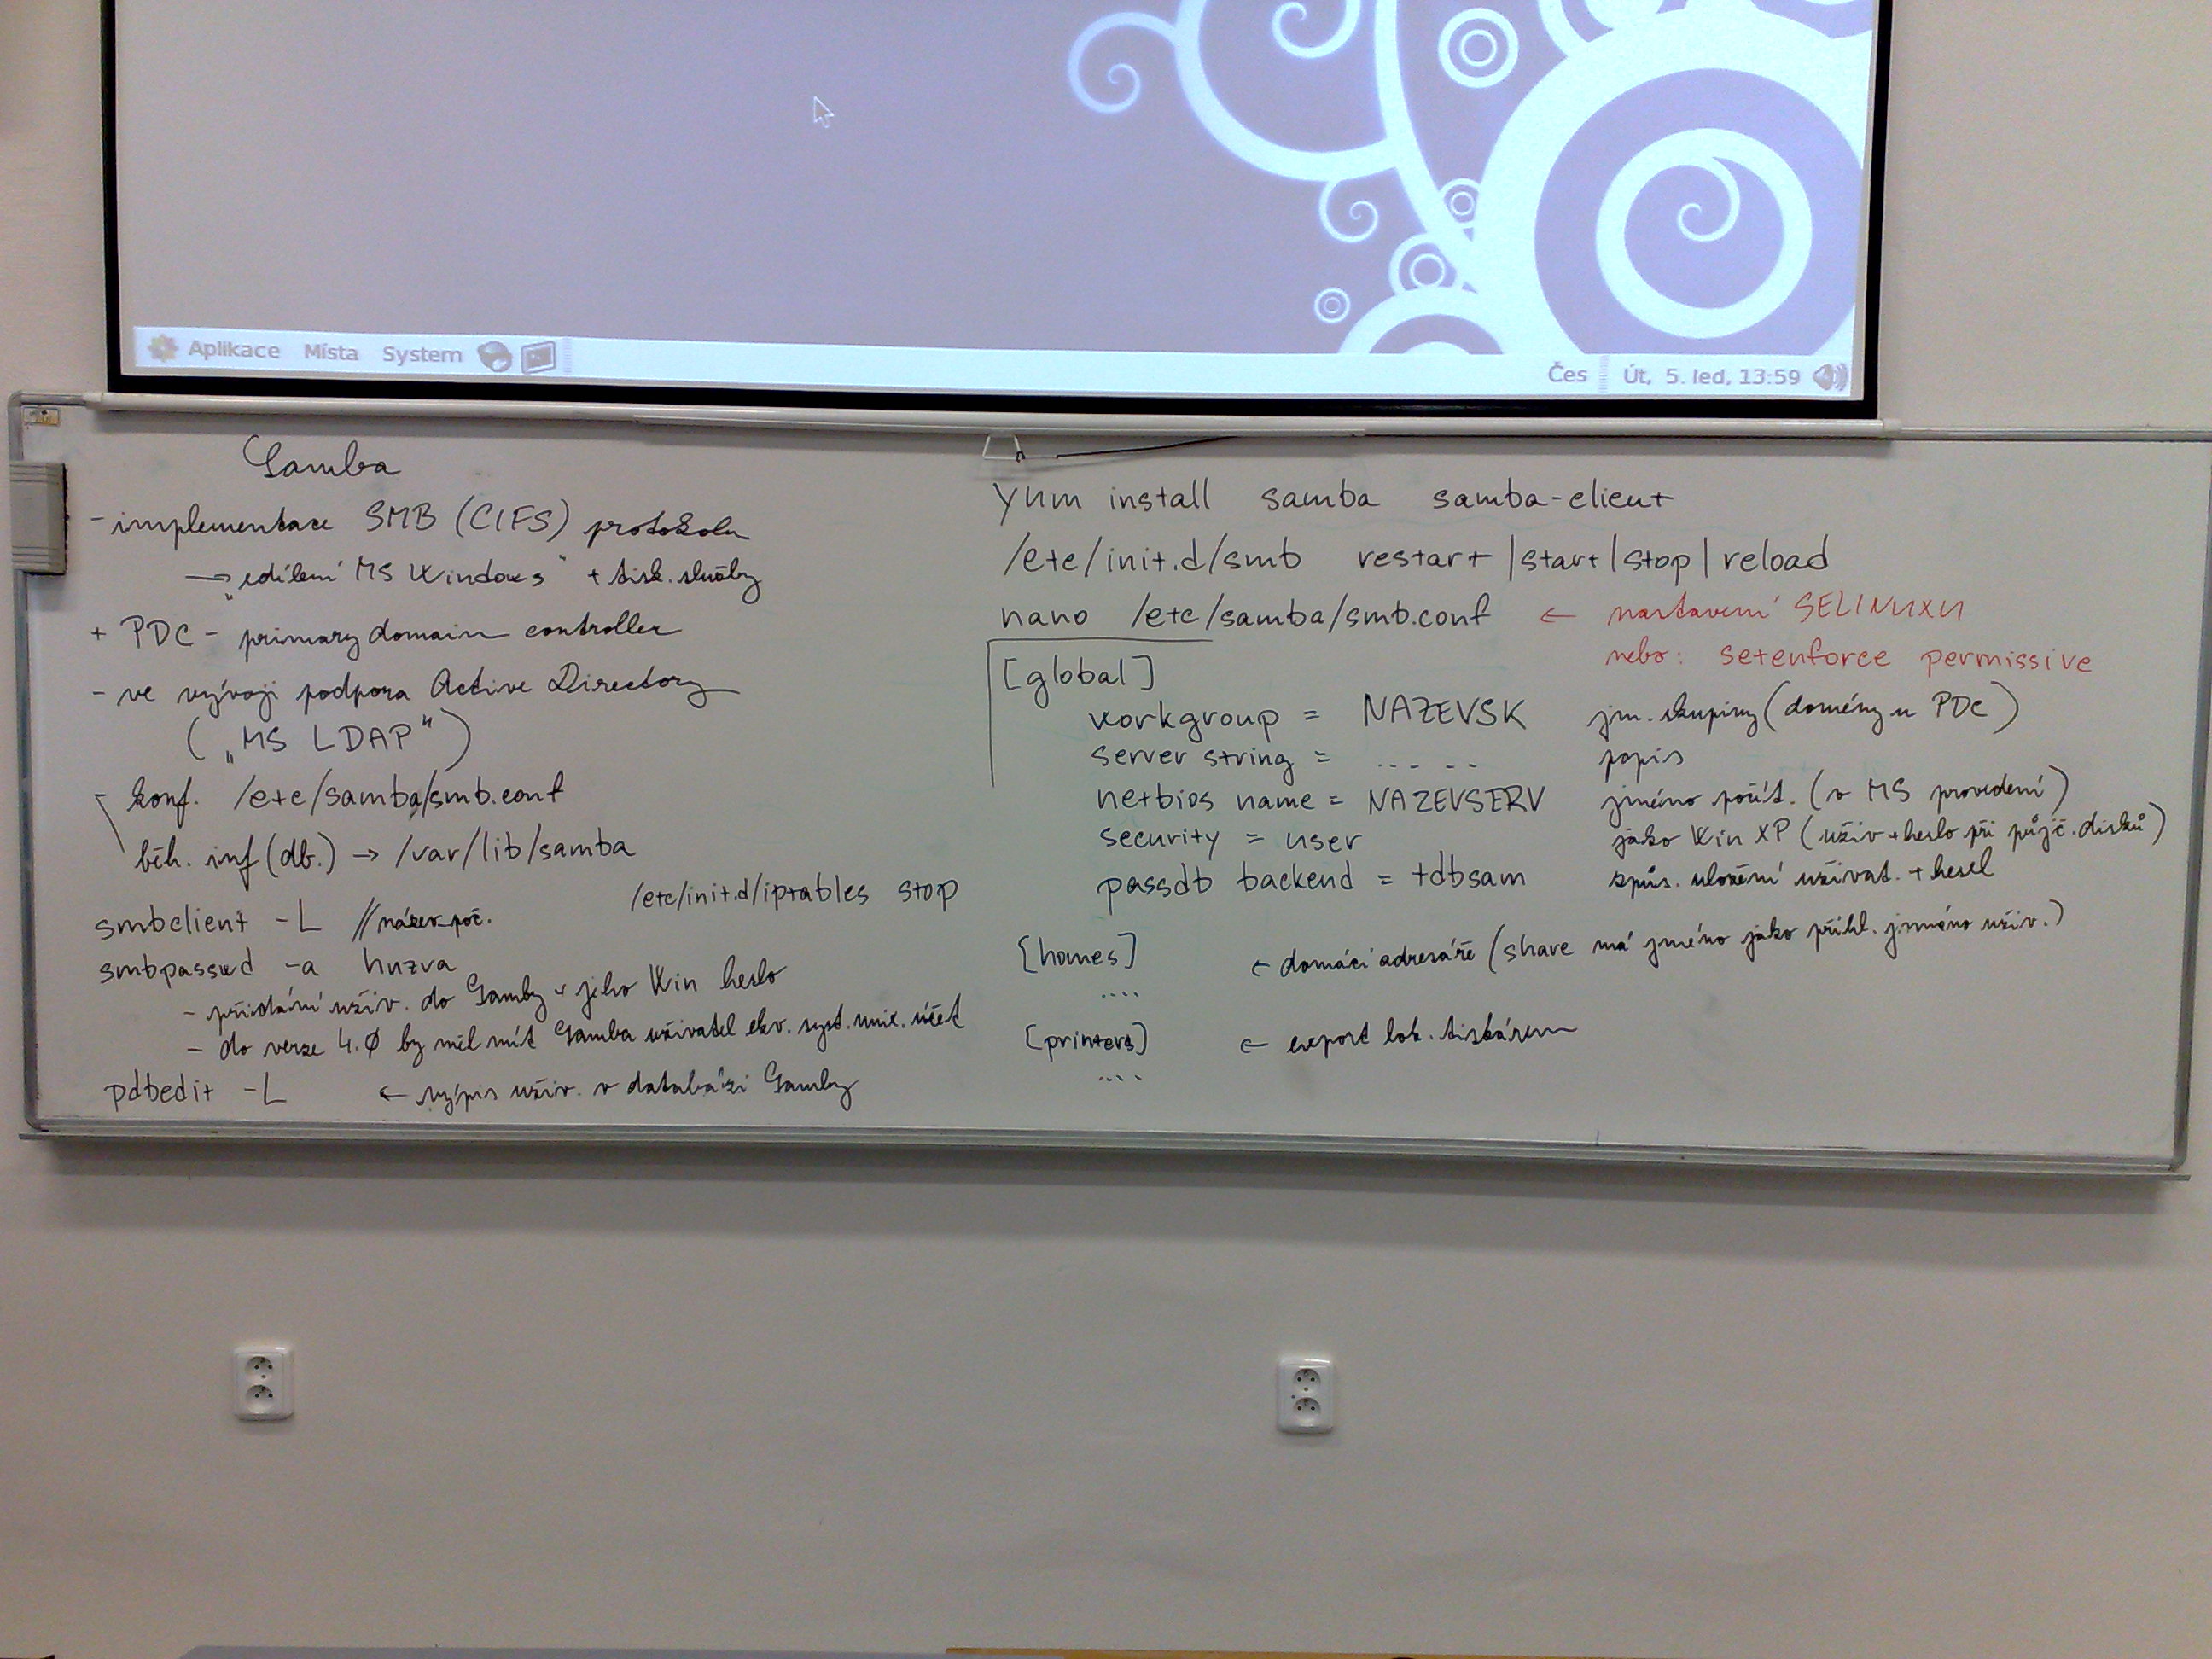 Aplikace Místa System
Čes Út, 5. led, 13:59
Samba
- implementace SMB (CIFS) protokolu
→ „sdílení MS Windows" + tisk. služby
+ PDC - primary domain controller
- ve vývoji podpora Active Directory
(„MS LDAP")
- konf. /etc/samba/smb.conf
běh. inf (db.) → /var/lib/samba
/etc/init.d/iptables stop
smbclient -L //název_poč.
smbpasswd -a hnzva
- přidání uživ. do Samby + jeho Win heslo
- do verze 4.0 by měl mít Samba uživatel ekv. syst. unix. účet
pdbedit -L ← výpis uživ. v databázi Samby
yum install samba samba-client
/etc/init.d/smb restart |start|stop| reload
nano /etc/samba/smb.conf ← nastavení SELINUXU
nebo: setenforce permissive
[global]
workgroup = NAZEVSK jm. skupiny (domény u PDC)
server string = ..... popis
netbios name = NAZEVSERV jméno počít. (v MS provedení)
security = user jako Win XP (uživ + heslo při půjč. disků)
passdb backend = tdbsam způs. uložení uživat. + hesel
[homes] ← domácí adresáře (share má jméno jako přihl. jméno uživ.)
....
[printers] ← export lok. tiskáren
....